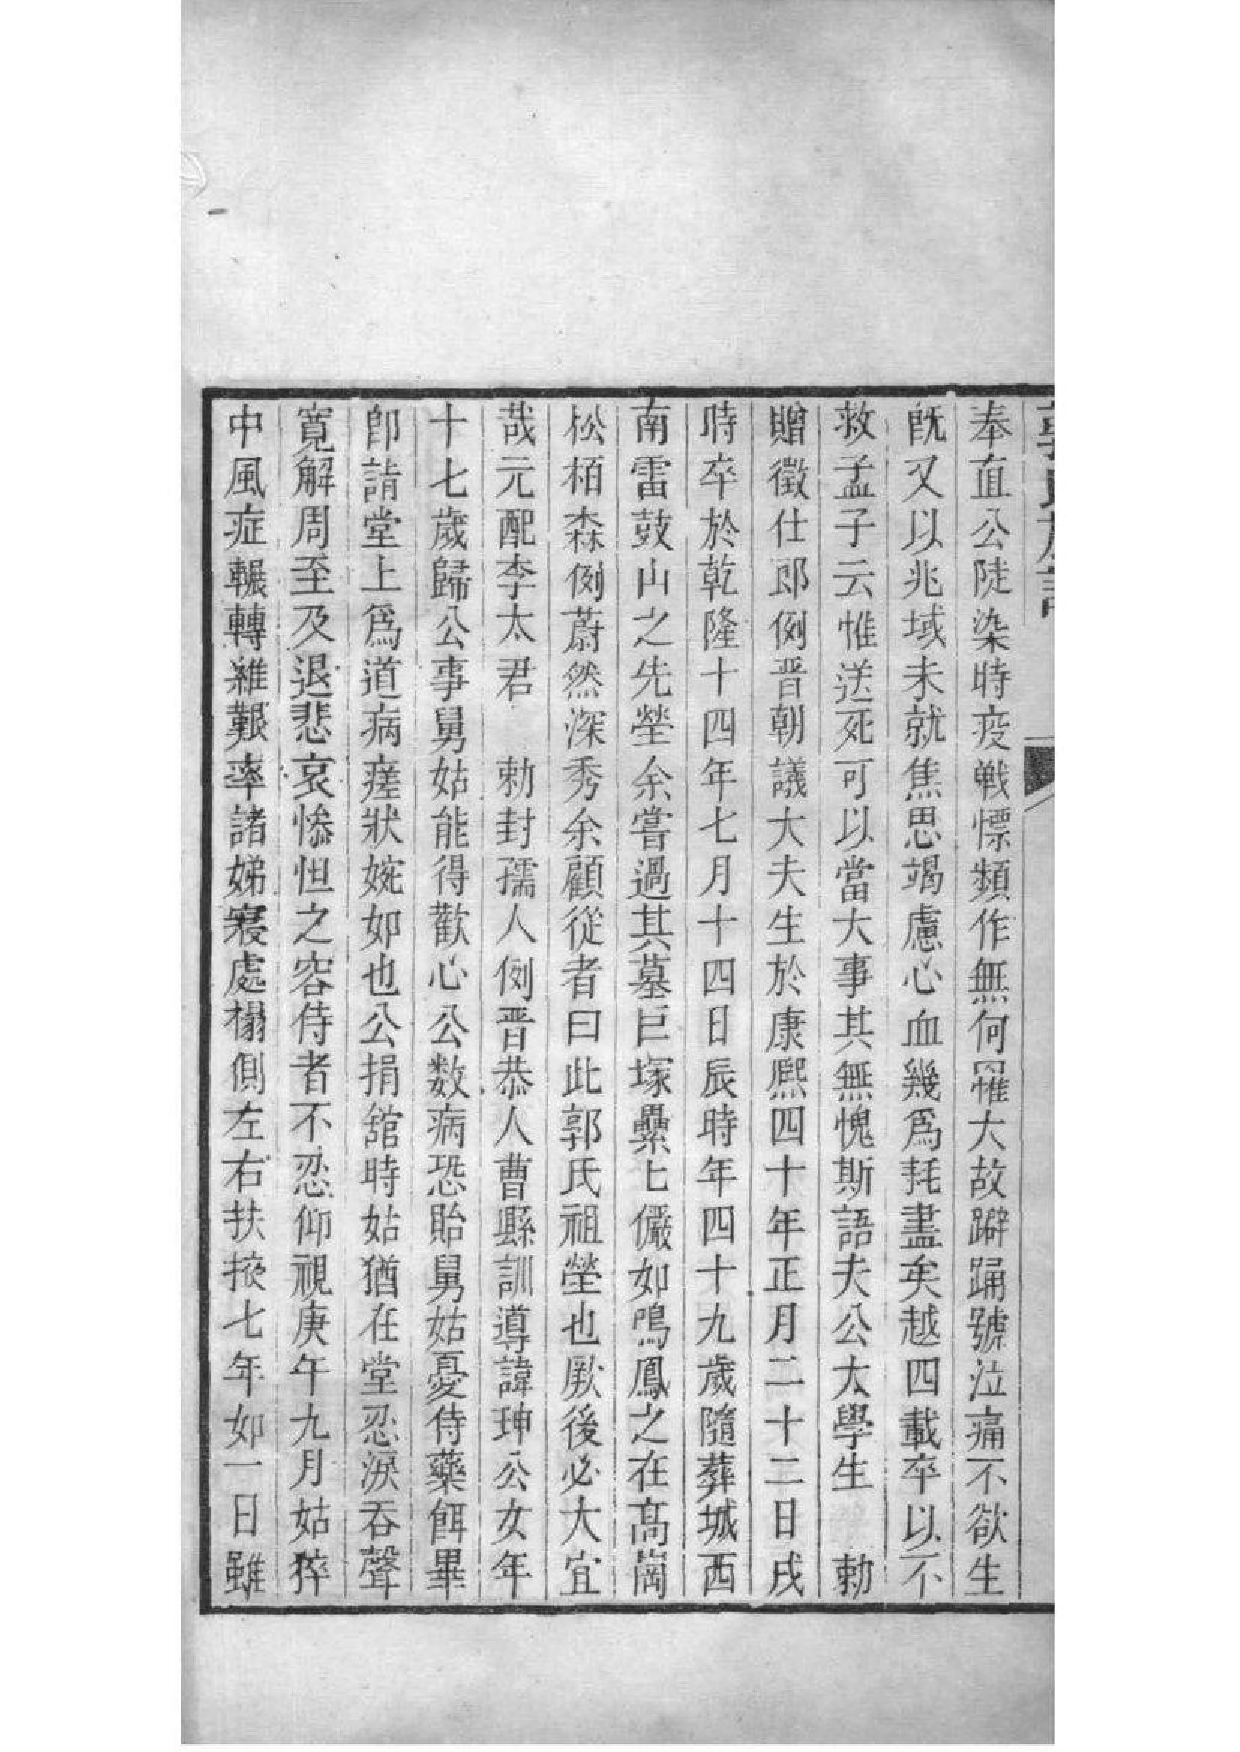 郭氏族譜
奉直公陡染時疫戰慄類作無何罹大故躃踊號泣痛不欲生
旣又以兆域未就焦思竭慮心血幾爲耗盡矣越四載卒以不
救孟子云惟送死可以當大事其無愧斯語夫公太學生　勅
贈徵仕郎例晋朝議大夫生於康熙四十年正月二十二日戌
時卒於乾隆十四年七月十四日辰時年四十九歲隨葬城西
南雷鼓山之先塋余嘗過其墓巨塚纍匕儼如鳴鳳之在高崗
松栢森例蔚然深秀余顧從者曰此郭氏祖塋也厥後必大宜
哉元配李太君　勅封孺人例晋恭人曹縣訓導諱珅公女年
十七歲歸公事舅姑能得歡心公数病恐貽舅姑憂侍藥餌畢
卽請堂上爲道病瘥狀婉如也公捐舘時姑猶在堂忍淚吞聲
寬解周至及退悲哀慘怛之容侍者不忍仰視庚午九月姑猝
中風症輾轉維艱率諸娣寢處榻側左右扶掖七年如一日雖